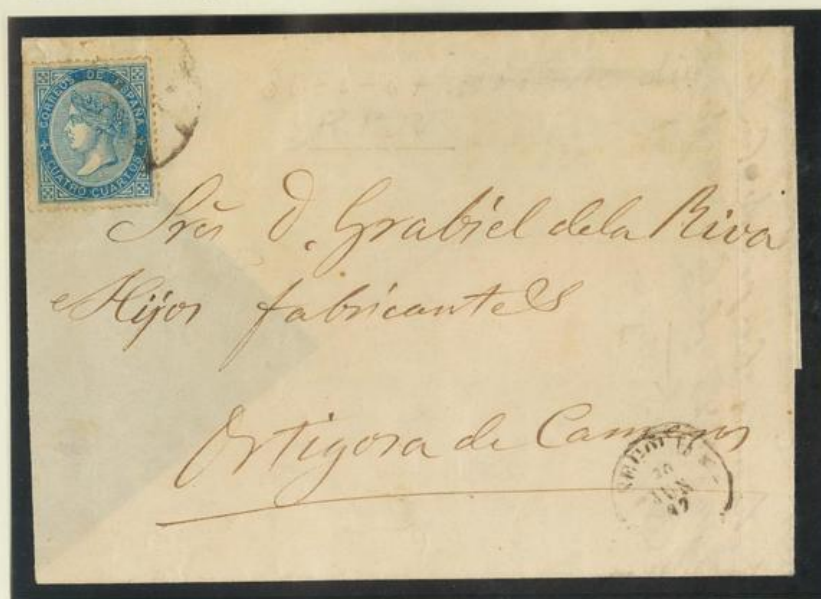 CORREOS DE ESPAÑA
CUATRO CUARTOS
Sres D. Grabiel de la Riva
e Hijos fabricantes
Ortigosa de Cameros
20
JUN
67